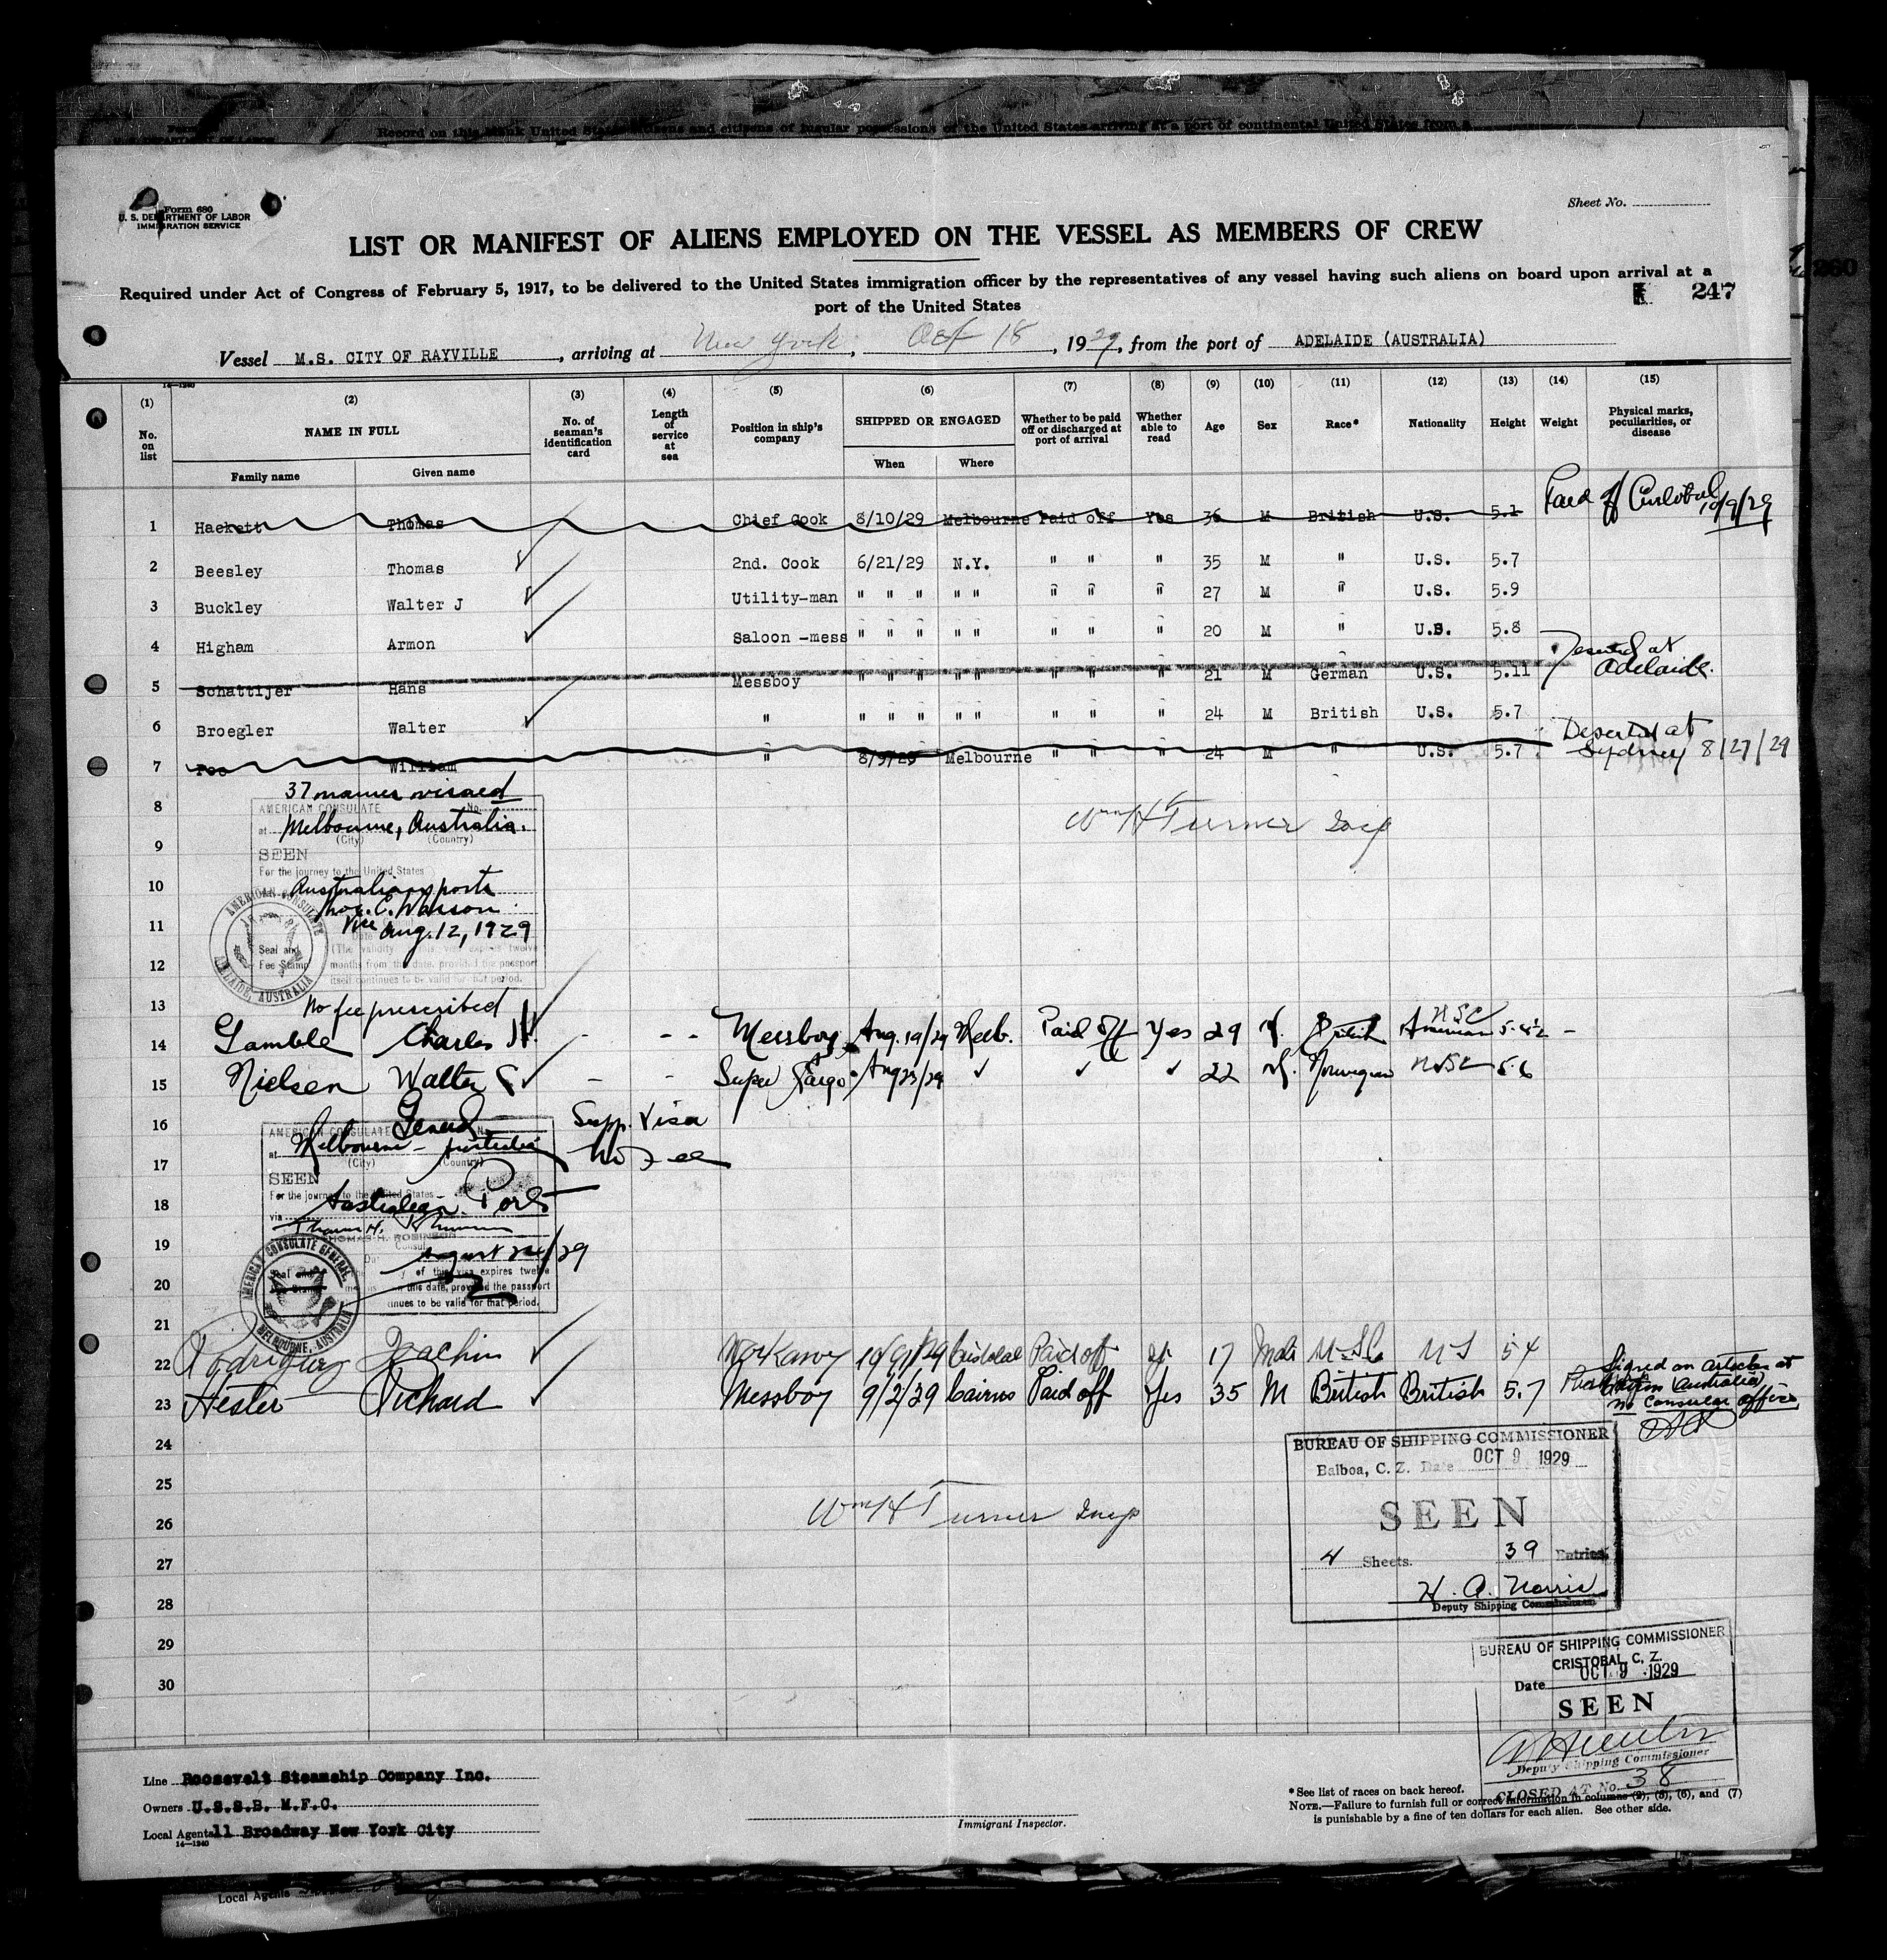 Record on this blank United States citizens and citizens of insular possessions of the United States arriving at a port of continental United States from a
Form 680
U. S. DEPARTMENT OF LABOR
IMMIGRATION SERVICE
Sheet No.
LIST OR MANIFEST OF ALIENS EMPLOYED ON THE VESSEL AS MEMBERS OF CREW
Required under Act of Congress of February 5, 1917, to be delivered to the United States immigration officer by the representatives of any vessel having such aliens on board upon arrival at a
port of the United States
247
260
Vessel M.S. CITY OF RAYVILLE, arriving at New York, Oct 18, 1929, from the port of ADELAIDE (AUSTRALIA)
14—1240
(1) (2) (3) (4) (5) (6) (7) (8) (9) (10) (11) (12) (13) (14) (15)
No. on list NAME IN FULL No. of seaman's identification card Length of service at sea Position in ship's company SHIPPED OR ENGAGED Whether to be paid off or discharged at port of arrival Whether able to read Age Sex Race* Nationality Height Weight Physical marks, peculiarities, or disease
Family name Given name When Where
1 Hackett Thomas Chief Cook 8/10/29 Melbourne Paid off Yes 36 M British U.S. 5.1 Paid off Cristobal 10/9/29
2 Beesley Thomas 2nd. Cook 6/21/29 N.Y. " " " 35 M " U.S. 5.7
3 Buckley Walter J Utility-man " " " " " " " " 27 M " U.S. 5.9
4 Higham Armon Saloon -mess " " " " " " " " 20 M " U.S. 5.8
5 Schattijer Hans Messboy " " " " " " " " 21 M German U.S. 5.11 Deserted at Adelaide.
6 Broegler Walter " " " " " " " " " 24 M British U.S. 5.7
7 William " 8/9/29 Melbourne " " " 24 M " U.S. 5.7 Deserted at Sydney 8/27/29
37 names visaed
8 AMERICAN CONSULATE No.
at Melbourne, Australia.
(City) (Country)
Wm H Turner Insp
9 SEEN
For the journey to the United States
10 Australian ports
11 Thos. E. Watson
Vice Aug. 12, 1929
AMERICAN CONSULATE
Seal and Fee Stamp
ADELAIDE, AUSTRALIA
12 (The validity of this visa expires twelve
months from this date, provided the passport
itself continues to be valid for that period.
13 No fee prescribed
14 Gamble Charles H. - - - Messboy Aug. 19/29 Melb. Paid off Yes 29 M. British American U S C 5.4½ -
15 Nielsen Walter C - - Super Cargo Aug 23/29 ✓ ✓ ✓ 22 M. Norwegian USC 5.6
16 General Supp. Visa
AMERICAN CONSULATE No.
at Melbourne - Australia
17 (City) (Country) No Fee
SEEN
For the journey to the United States
18 via Australian Ports
THOMAS H. ROBINSON
19 Consul
August 24/29
20 of this visa expires twelve
this date, provided the passport
continues to be valid for that period.
AMERICAN CONSULATE GENERAL,
MELBOURNE, AUSTRALIA
21
22 Rodriguez Joachin Workaway 10/9/29 Cristobal Paid off 17 Male U-S U S 5 4
23 Hester Richard Messboy 9/2/29 Cairns Paid off Yes 35 M British British 5.7 Signed on articles at
Cairns (Australia)
no Consular office
24
25
26 Wm H Turner Insp
27
28
29
30
BUREAU OF SHIPPING COMMISSIONER
Balboa, C. Z. Date OCT 9 1929
SEEN
4 Sheets. 39 Entries.
H. A. Norris
Deputy Shipping Commissioner
BUREAU OF SHIPPING COMMISSIONER
CRISTOBAL, C. Z.
Date OCT 9 1929
SEEN
Deputy Shipping Commissioner
CLOSED AT No. 38
Line Roosevelt Steamship Company Inc.
Owners U.S.S.B. M.F.C.
Local Agents 11 Broadway New York City
14—1240
Immigrant Inspector.
* See list of races on back hereof.
NOTE.—Failure to furnish full or correct information in columns (2), (5), (6), and (7)
is punishable by a fine of ten dollars for each alien. See other side.
Local Agents